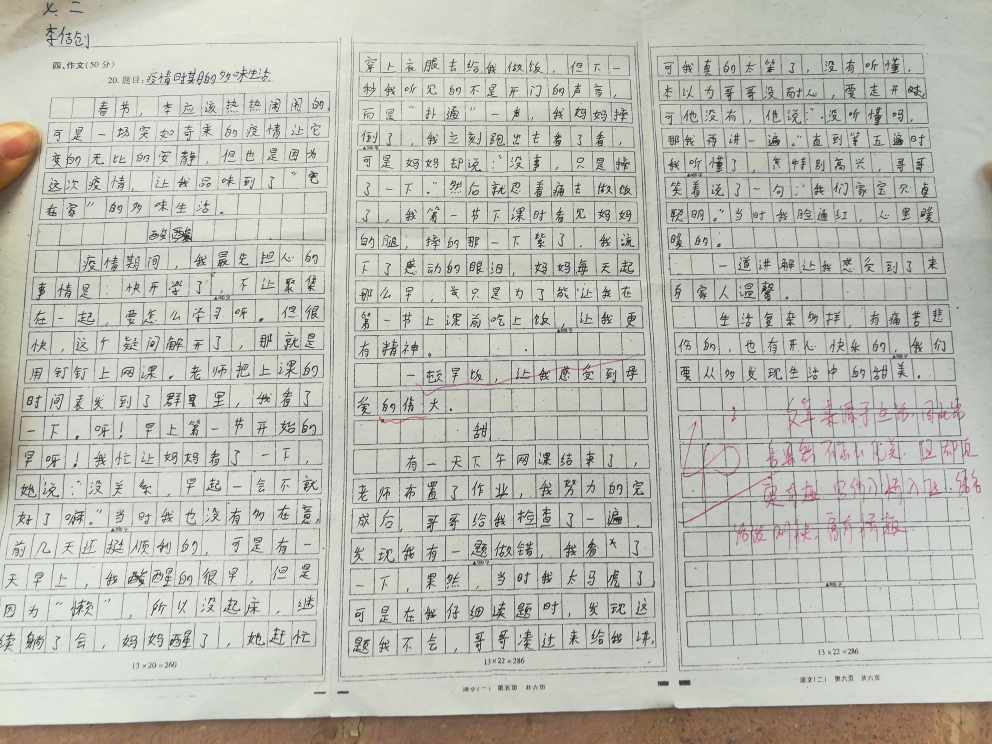 七 二
李佶创
四、作文(50分)
20. 题目:疫情时期的多味生活
春节,本应该热热闹闹的,
可是一场突如奇来的疫情让它
变的无比的安静,但也是因为
这次疫情,让我品味到了“宅
在家”的多味生活。
酸
疫情期间,我最先担心的
事情是:快开学了,不让聚集
在一起,要怎么学习呀。但很
快,这个疑问解开了,那就是
用钉钉上网课。老师把上课的
时间表发到了群里,我看了
一下。呀!早上第一节开始的
早呀!我忙让妈妈看了一下,
她说:“没关系,早起一会不就
好了嘛。”当时我也没有多在意。
前几天还挺顺利的,可是有一
天早上,我醒的很早,但是
因为“懒”,所以没起床,继
续躺了会,妈妈醒了,她赶忙
13×20=260
穿上衣服去给我做饭,但下一
秒我听见的不是开门的声音,
而是“扑通”一声,我妈妈摔
倒了,我立刻跑出去看了看,
可是妈妈却说:“没事,只是摔
了一下。”然后就忍着痛去做饭
了,我第一节下课时看见妈妈
的腿,摔的那一下紫了,我流
下了感动的眼泪,妈妈每天起
那么早,就只是为了能让我在
第一节上课前吃上饭,让我更
有精神。
一顿早饭,让我感受到母
爱的伟大。
甜
有一天下午网课结束了,
老师布置了作业,我努力的完
成后,哥哥给我检查了一遍,
发现我有一题做错,我看了
一下,果然,当时我太马虎了
可是在我仔细读题时,发现这
题我不会,哥哥凑过来给我讲,
13×22=286
语文(二) 第五页 共六页
可我真的太笨了,没有听懂,
本以为哥哥没耐心,要走开时,
可他没有,他说:“没听懂吗,
那我再讲一遍。”直到第五遍时
我听懂了,特别高兴,哥哥
笑着说了一句:“我们家宝贝真
聪明。”当时我脸通红,心里暖
暖的。
一道讲解让我感受到了来
自家人温馨。
生活复杂多样,有痛苦悲
伤的,也有开心快乐的,我们
要从多发现生活中的甜美。
文章来源于生活,
13×22=286
语文(二) 第六页 共六页